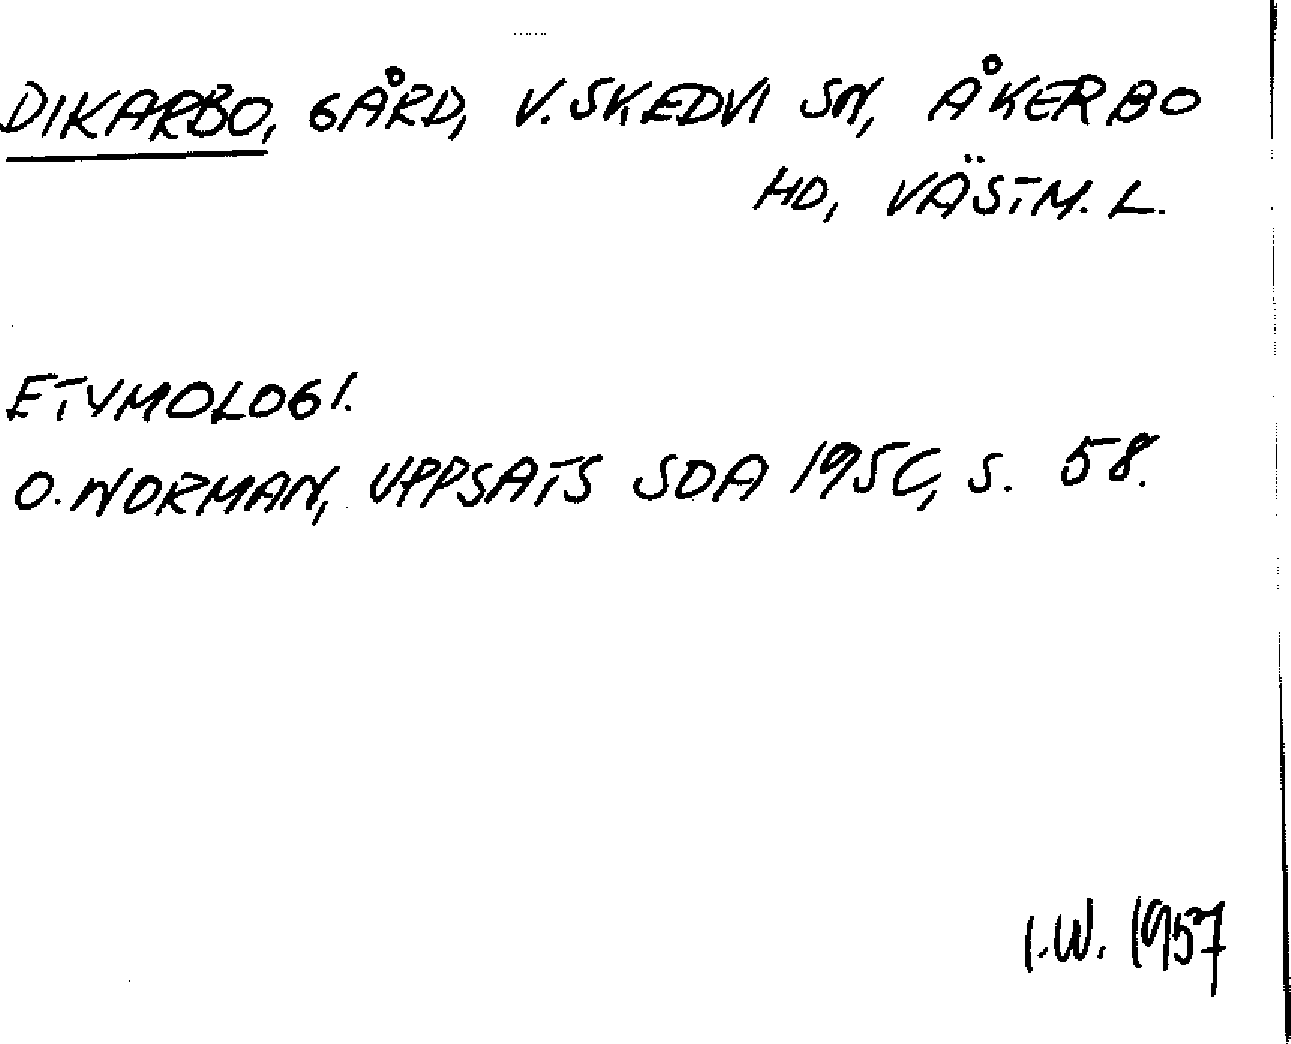 DIKARBO, GÅRD, V. SKEDVI SN, ÅKERBO
HD, VÄSTM. L.
ETYMOLOGI.
O. NORMAN, UPPSATS SOA 1950, S. 58.
I.W. 1957